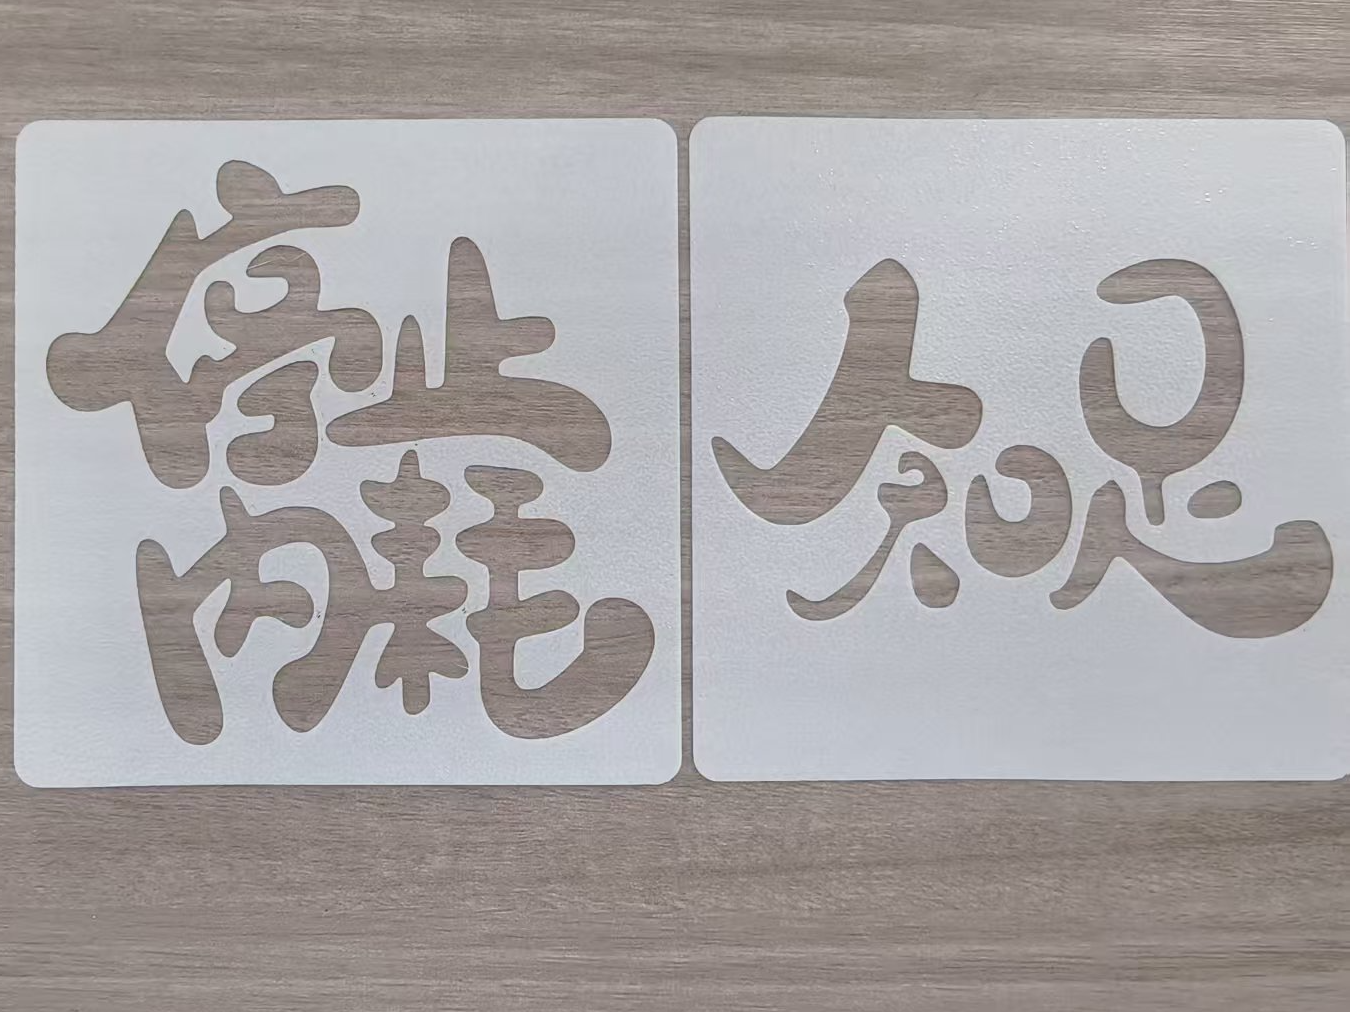 停止
内耗
知足